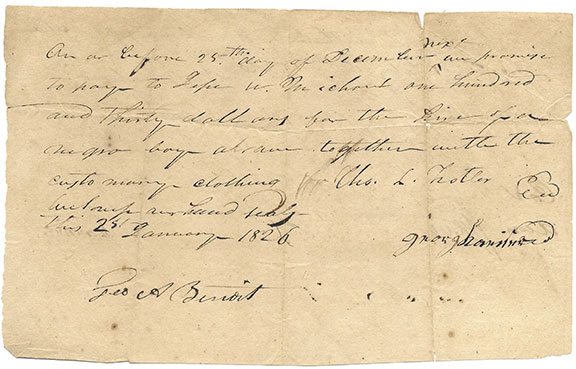 On or before 25th day of December next we promise
to pay to Jesse W. Nichols one hundred
and thirty dollars for the hire of a
negro boy together with the
customary clothing Thos. L.
our hand seals
this 2nd January 1826 George
Geo A Benoit